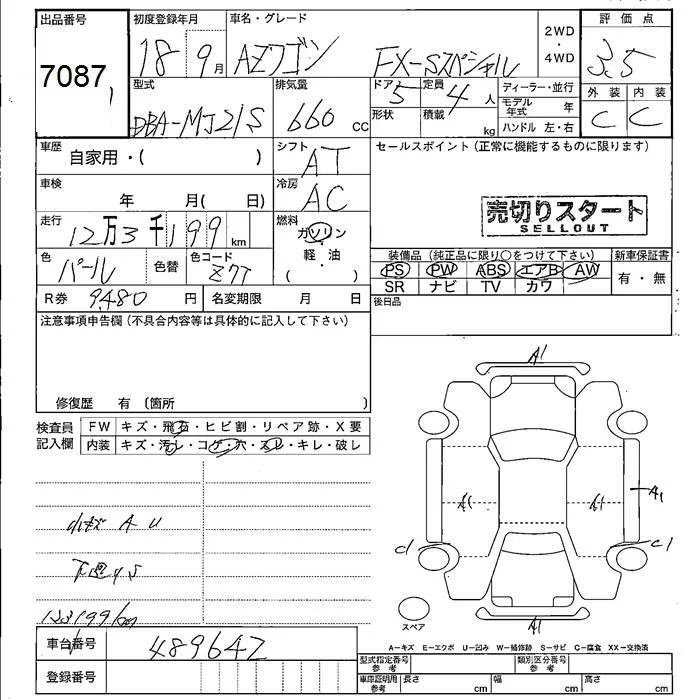 出品番号 初度登録年月 車名・グレード 2WD ・ 4WD 評価点
7087 18 9月 AZワゴン FX-Sスペシャル 3.5
型式 排気量 ドア 定員 ディーラー・並行 外装 内装
DBA-MJ21S 660 CC 5 4人 モデル年式 年 C C
形状 積載 kg ハンドル 左・右
車歴 シフト セールスポイント(正常に機能するものに限ります)
自家用・( ) AT
車検 冷房
年 月( 日) AC
売切りスタート
SELLOUT
走行 燃料
12万3千199km ガソリン・軽・油 ( )
装備品(純正品に限り○をつけて下さい) 新車保証書
色 色替 色コード
パール Z7T
PS PW ABS エアB AW 有・無
SR ナビ TV カワ
R券 9,480円 名変期限 月 日
後日品
注意事項申告欄(不具合内容等は具体的に記入して下さい)
修復歴 有〔箇所 〕
検査員記入欄 FW キズ・飛石・ヒビ割・リペア跡・X要
内装 キズ・汚レ・コゲ・穴・スレ・キレ・破レ
小キズ A U
下廻りS
123199km
車台番号 489642
登録番号
A1
A1 A1 A1
C1 C1
スペア
A1
A-キズ E-エクボ U-凹み W-補修跡 S-サビ C-腐食 XX-交換済
型式指定番号 参考 類別区分番号 参考
車庫証明用 参考 長さ cm 幅 cm 高さ cm